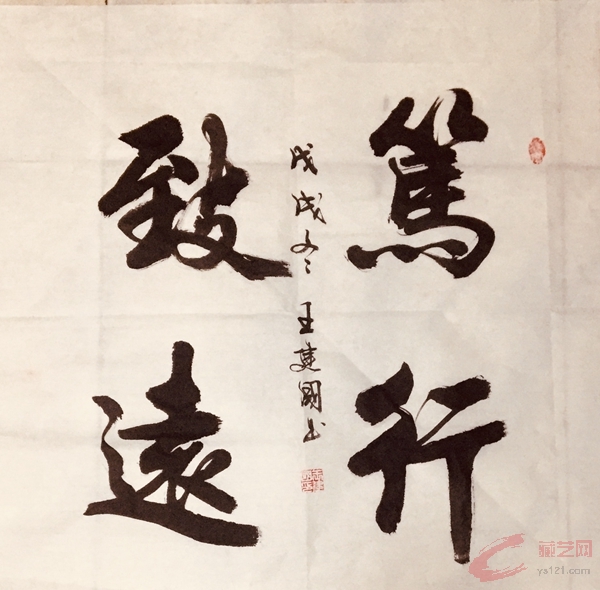 篤行
致遠
戊戌冬王建國书
藏艺网
ya121.com